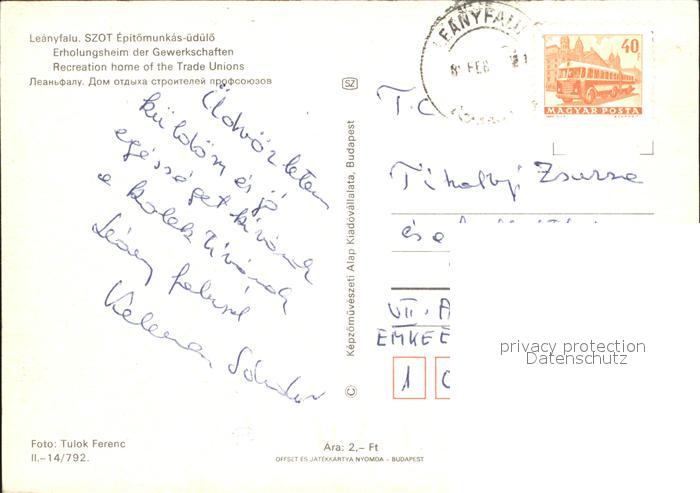 Leányfalu. SZOT Építőmunkás-üdülő
Erholungsheim der Gewerkschaften
Recreation home of the Trade Unions
Леаньфалу. Дом отдыха строителей профсоюзов
LEÁNYFALU
8 FEB 21
40 F
MAGYAR POSTA
SZ
T. C
Tihalyi Zsuzsa
és a
VII. A
EMKE
1
Üdvözletem
küldöm és jó
egészséget kívánok
a kolektívának
Leány faluról
Kelemen Sándor
Képzőművészeti Alap Kiadóvállalata, Budapest
©
privacy protection
Datenschutz
Foto: Tulok Ferenc
II.–14/792.
Ára: 2,– Ft
OFFSET ÉS JÁTÉKKÁRTYA NYOMDA – BUDAPEST